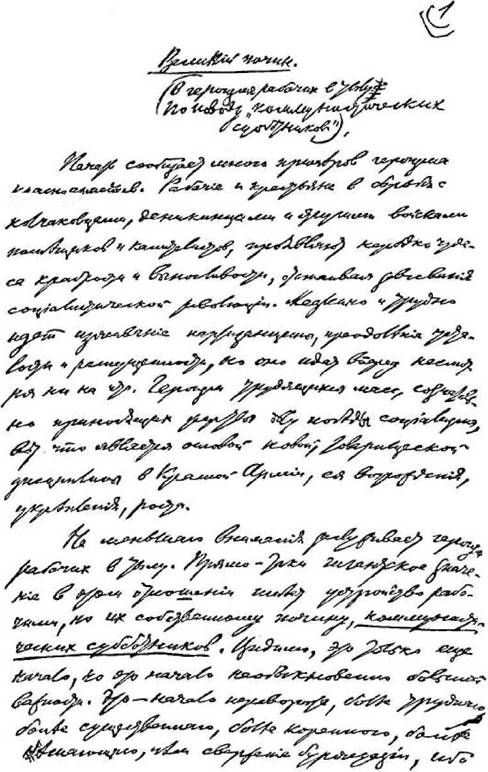 1
Великій почин.
(О героизме рабочих в тылу.
По поводу „коммунистических
субботников").
Печать сообщает много примѣров героизма
красноармейцев. Рабочіе и крестьяне в борьбѣ с
колчаковцами, деникинцами и другими войсками
помѣщиков и капиталистов, проявляют нередко чуде-
са храбрости и выносливости, отстаивая завоеванія
социалистической революціи. Медленно и трудно
идет изживаніе партизанщины, преодолѣніе уста-
лости и распущенности, но оно идет вперед несмот-
ря ни на что. Героизм трудящихся масс, сознатель-
но приносящих жертвы делу победы социализма,
вот что является основой новой, товарищеской
дисциплины в Красной Арміи, ея возрожденія,
укрѣпленія, роста.
Не меньшаго вниманія заслуживает героизм
рабочих в тылу. Прямо-таки гигантское значе-
ніе в этом отношеніи имѣет устройство рабо-
чими, по их собственному почину, коммунисти-
ческих субботников. Видимо, это только еще
начало, но это начало необыкновенно большой
важности. Это — начало переворота, болѣе труднаго,
болѣе существеннаго, болѣе кореннаго, болѣе
рѣшающаго, чѣм сверженіе буржуазіи, ибо